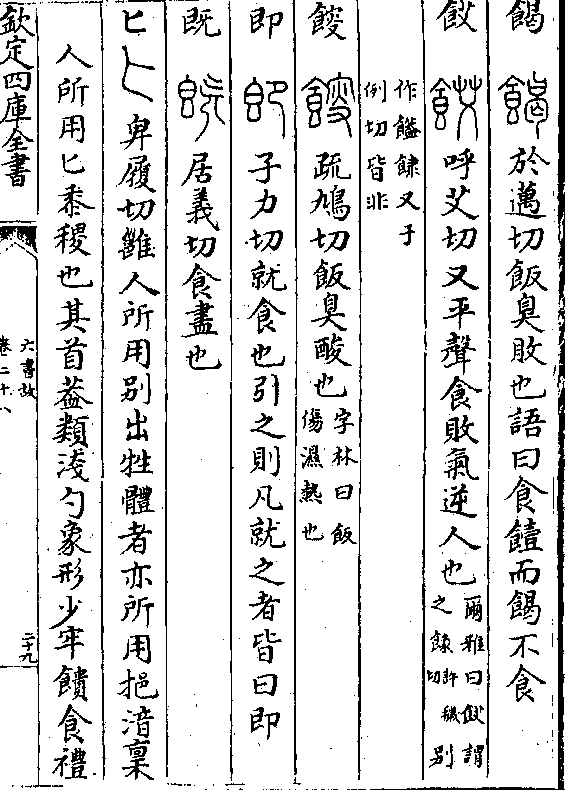 餲 於邁切飯臭敗也語曰食饐而餲不食
餀 呼艾切又平聲食敗氣逆人也爾雅曰餀謂之餯許穢切別
作饖餗又于例切皆非
餿 疏鳩切飯臭酸也字林曰飯傷濕熱也
即 子力切就食也引之則凡就之者皆曰即
既 居義切食盡也
匕 卑履切雝人所用別出牲體者亦所用挹湆稟
人所用匕黍稷也其首葢類淺勺象形少牢饋食禮
欽定四庫全書
六書故
卷二十八
二十九